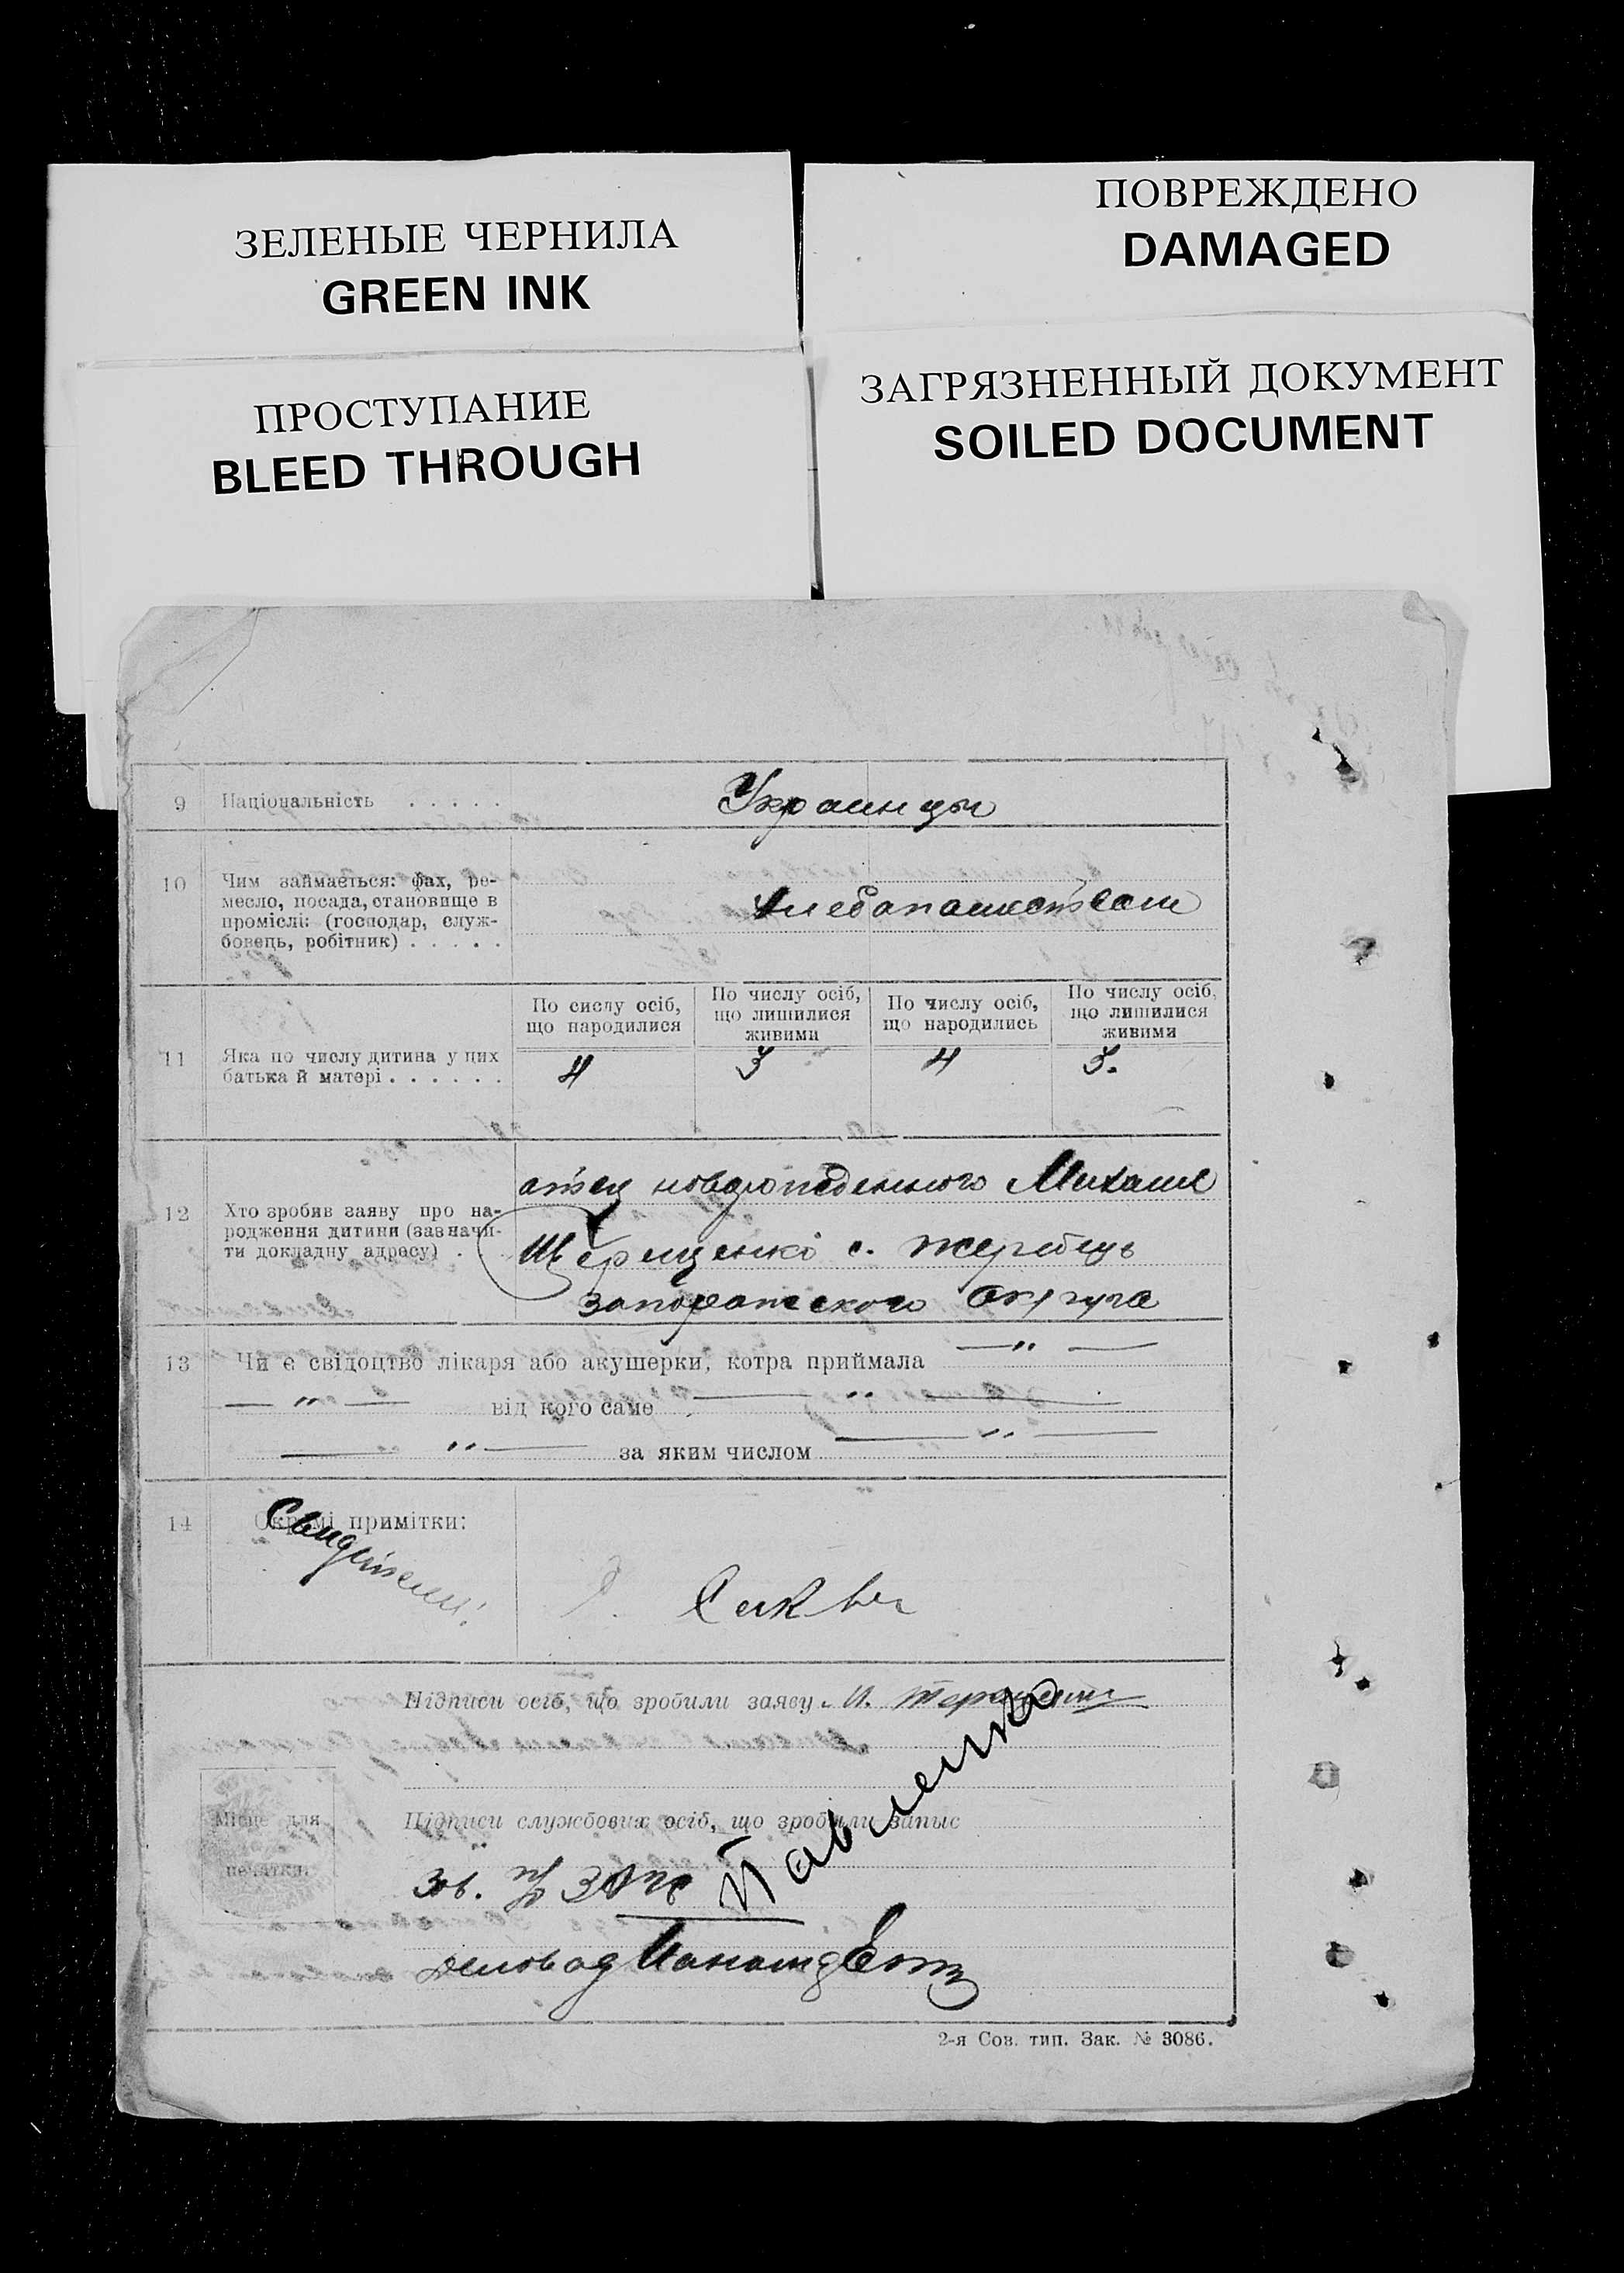 ЗЕЛЕНЫЕ ЧЕРНИЛА
GREEN INK
ПРОСТУПАНИЕ
BLEED THROUGH
ПОВРЕЖДЕНО
DAMAGED
ЗАГРЯЗНЕННЫЙ ДОКУМЕНТ
SOILED DOCUMENT
9 Національність . . . . . Украинцы
10 Чим займається: фах, ре-
месло, посада, становище в
промислі: (господар, служ-
бовець, робітник) . . . . .
Хлебопашеством
11 Яка по числу дитина у цих
батька й матері . . . . . .
По сислу осіб,
що народилися
По числу осіб,
що лишилися
живими
По числу осіб,
що народились
По числу осіб,
що лишилися
живими
4 3 4 3.
12 Хто зробив заяву про на-
родження дитини (зазначи-
ти докладну адресу) . .
отец новорожденного Михаил
с. Жеребець
Запорожского Округа
13 Чи є свідоцтво лікаря або акушерки, котра приймала — " —
— " — від кого саме — " —
— " — за яким числом — " —
14 Окремі примітки:
Свидетели:
Підписи осіб, що зробили заяву
Підписи службових осіб, що зробили запыс
Місце для
печатки.
Зав. п/о ЗАГС Павленко
Деловод
2-я Сов. тип. Зак. № 3086.